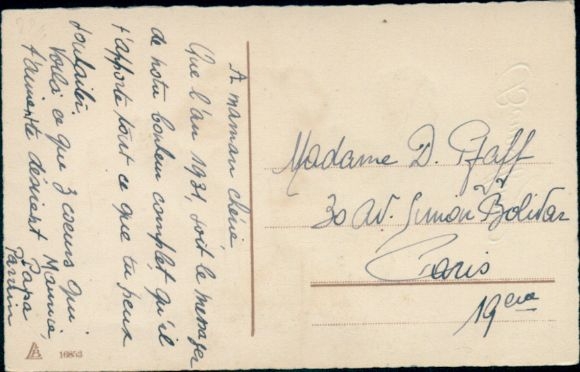 A maman chérie
Que l'an 1931, soit le messager
de notre bonheur complet qu'il
t'apporte tout ce que tu peux
souhaiter.
Voilà ce que 3 coeurs qui
t'aiment désirent
Mannie,
Papa
Madame D. Pfaff
30 Av. Simon Bolivar
Paris
19ème
16853